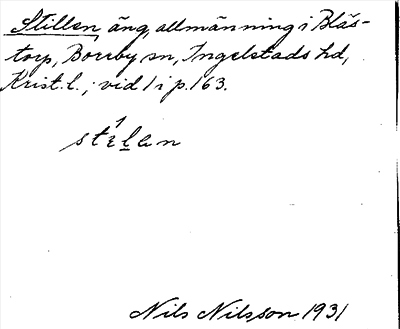 Stillen, äng, allmänning i Blås-
torp, Borrby sn, Ingelstads hd,
Krist. l.; vid 1 i p. 163.
Nils Nilsson 1931